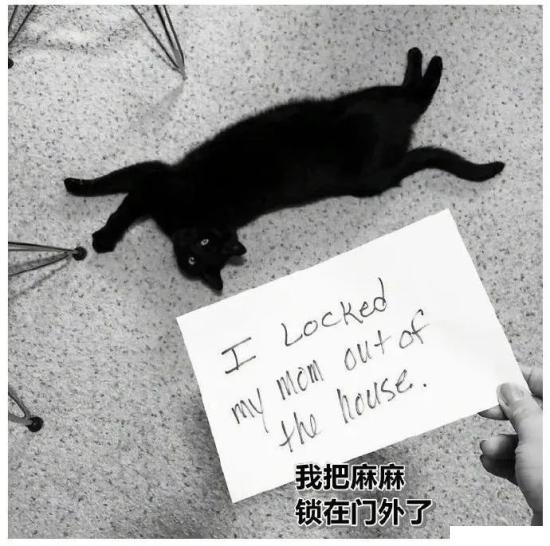 I Locked
my mom out of
the house.
我把麻麻
锁在门外了